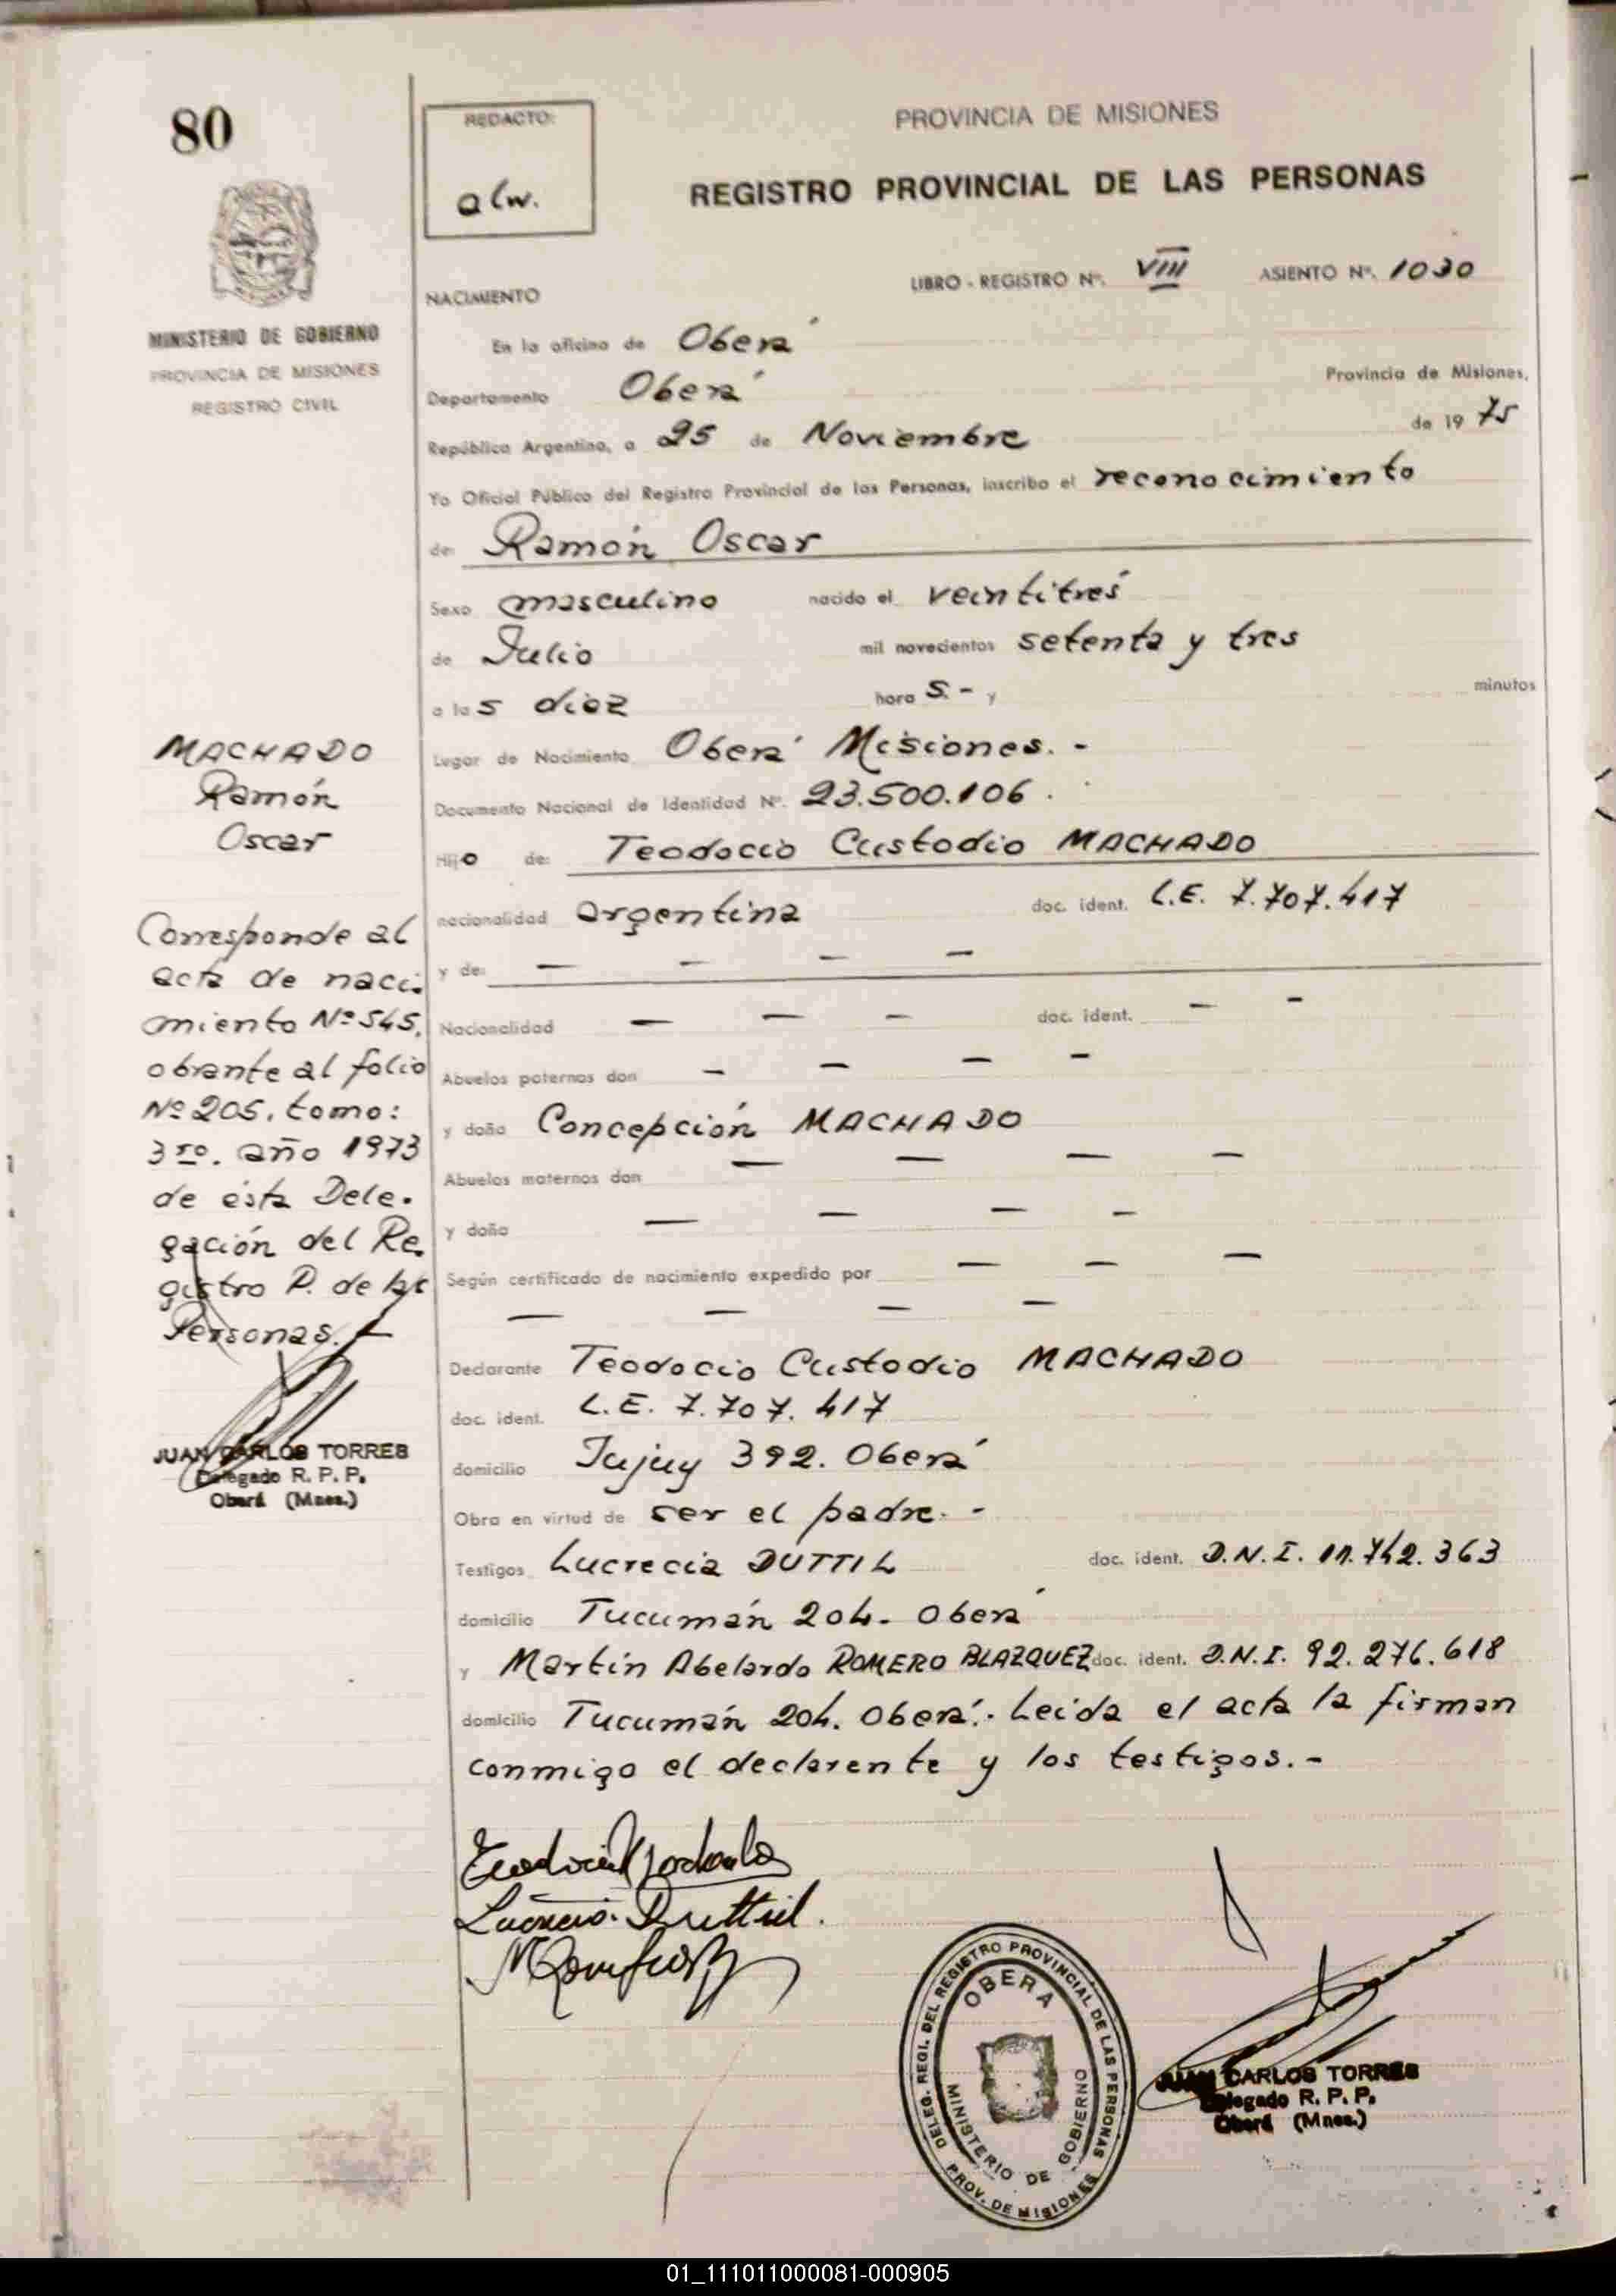 80
REDACTO:
alw.
PROVINCIA DE MISIONES
REGISTRO PROVINCIAL DE LAS PERSONAS
LIBRO - REGISTRO Nº. VIII ASIENTO Nº. 1030
NACIMIENTO
MINISTERIO DE GOBIERNO
PROVINCIA DE MISIONES
REGISTRO CIVIL
En la oficina de Oberá
Departamento Oberá Provincia de Misiones,
República Argentina, a 25 de Noviembre de 1975
Yo Oficial Público del Registro Provincial de las Personas, inscribo el reconocimiento
de: Ramón Oscar
Sexo masculino nacido el veintitrés
de Julio mil novecientos setenta y tres
a las diez hora s.- y minutos
Lugar de Nacimiento Oberá Misiones.-
Documento Nacional de Identidad Nº. 23.500.106.
Hijo de: Teodocio Custodio MACHADO
nacionalidad argentina doc. ident. L.E. 7.707.417
y de: — — — —
Nacionalidad — — — doc. ident. — —
Abuelos paternos don — — — —
y doña Concepción MACHADO
Abuelos maternos don — — — —
y doña — — — —
Según certificado de nacimiento expedido por — — —
— — — —
Declarante Teodocio Custodio MACHADO
doc. ident. L.E. 7.707.417
domicilio Jujuy 392. Oberá
Obra en virtud de ser el padre.-
Testigos Lucrecia DUTTIL doc. ident. D.N.I. 11.742.363
domicilio Tucumán 204. Oberá
y Martín Abelardo ROMERO BLAZQUEZ doc. ident. D.N.I. 92.276.618
domicilio Tucumán 204. Oberá.- Leída el acta la firman
conmigo el declarente y los testigos.-
MACHADO
Ramón
Oscar
Corresponde al
acta de naci-
miento Nº 545,
obrante al folio
Nº 205. tomo:
3ro. año 1973
de ésta Dele-
gación del Re-
gistro P. de las
Personas.-
JUAN CARLOS TORRES
Delegado R. P. P.
Oberá (Mnes.)
Lucrecia Duttil.
DELEG. REGI. DEL REGISTRO PROVINCIAL DE LAS PERSONAS
OBERA
MINISTERIO DE GOBIERNO
PROV. DE MISIONES
JUAN CARLOS TORRES
Delegado R. P. P.
Oberá (Mnes.)
01_111011000081-000905